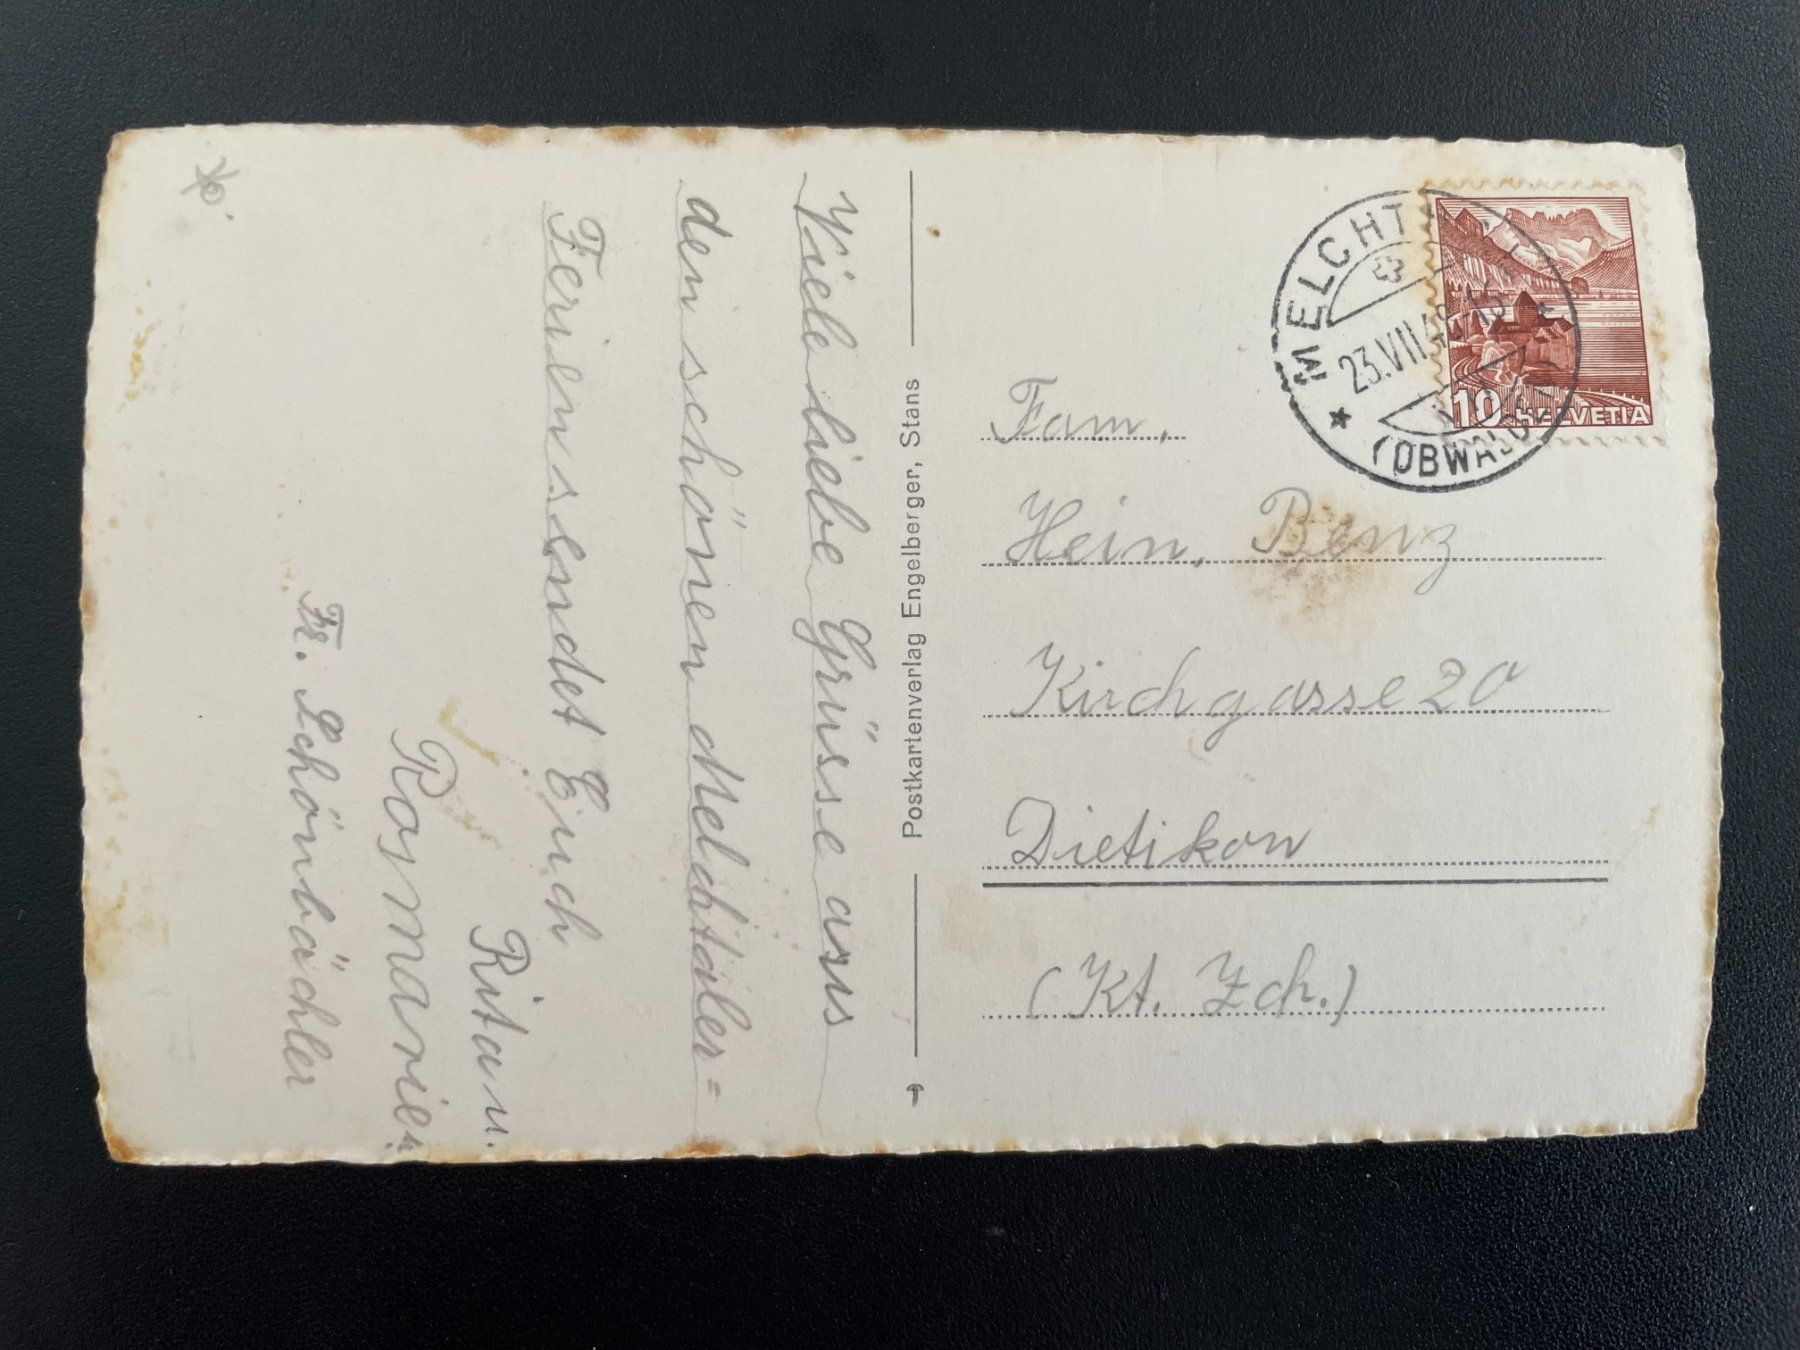 Viele liebe Grüsse aus
den schönen Melchtaler=
Ferien sendet Euch
Rita u.
Rosmarie.
Fr. Schönbächler
Postkartenverlag Engelberger, Stans
MELCHT
23.VII.48
(OBWALD
10 HELVETIA
Fam.
Hein, Benz
Kirchgasse 20
Dietikon
(Kt. Zch.)